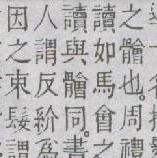 之䯤也。周禮
讀如馬會之
讀與䯤同。書
人謂反紒為
因之束髮謂